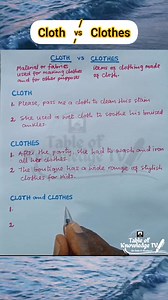 Cloth vs Clothes
CLOTH vs CLOTHES
Material or fabric
used for making clothes
and for other purposes
items of clothing made
of cloth.
CLOTH
1. Please, pass me a cloth to clean this stain
2. She used a wet cloth to soothe his bruised
knuckles
CLOTHES
1. After the party, she had to wash and iron
all her clothes.
2. The boutique has a wide range of stylish
clothes for kids.
CLOTH and CLOTHES
1.
2.
Table of
Knowledge TV